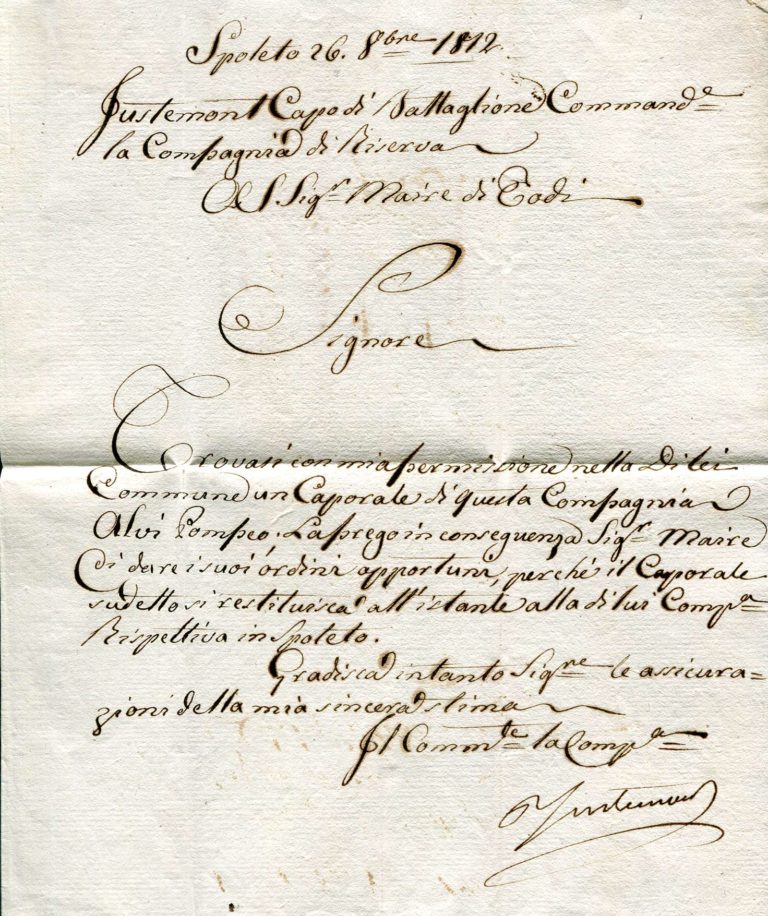 Spoleto 26. 8bre 1812.
Justemont Capo di Battaglione Commande
la Compagnia di Riserva
Al S. Sigr Maire di Todi
Signore
Trovasi con mia permissione nella Di lei
Commune un Caporale di questa Compagnia
Alvi Pompeo. La prego in conseguenza Sigr Maire
di dare i suoi ordini opportuni, perché il Caporale
sudetto si restituisca all'istante alla di lui Compa
Rispettiva in Spoleto.
Gradisca intanto Sigre le assicura=
zioni della mia sincera stima
Il Commte la Compa
Justemont